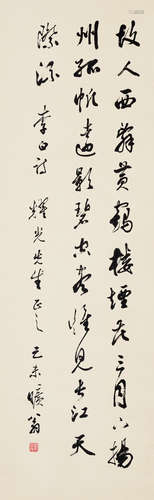 故人西辭黃鶴樓煙花三月下揚
州孤帆遠影碧空盡惟見長江天
際流 李白詩 光先生正之 己未 翁